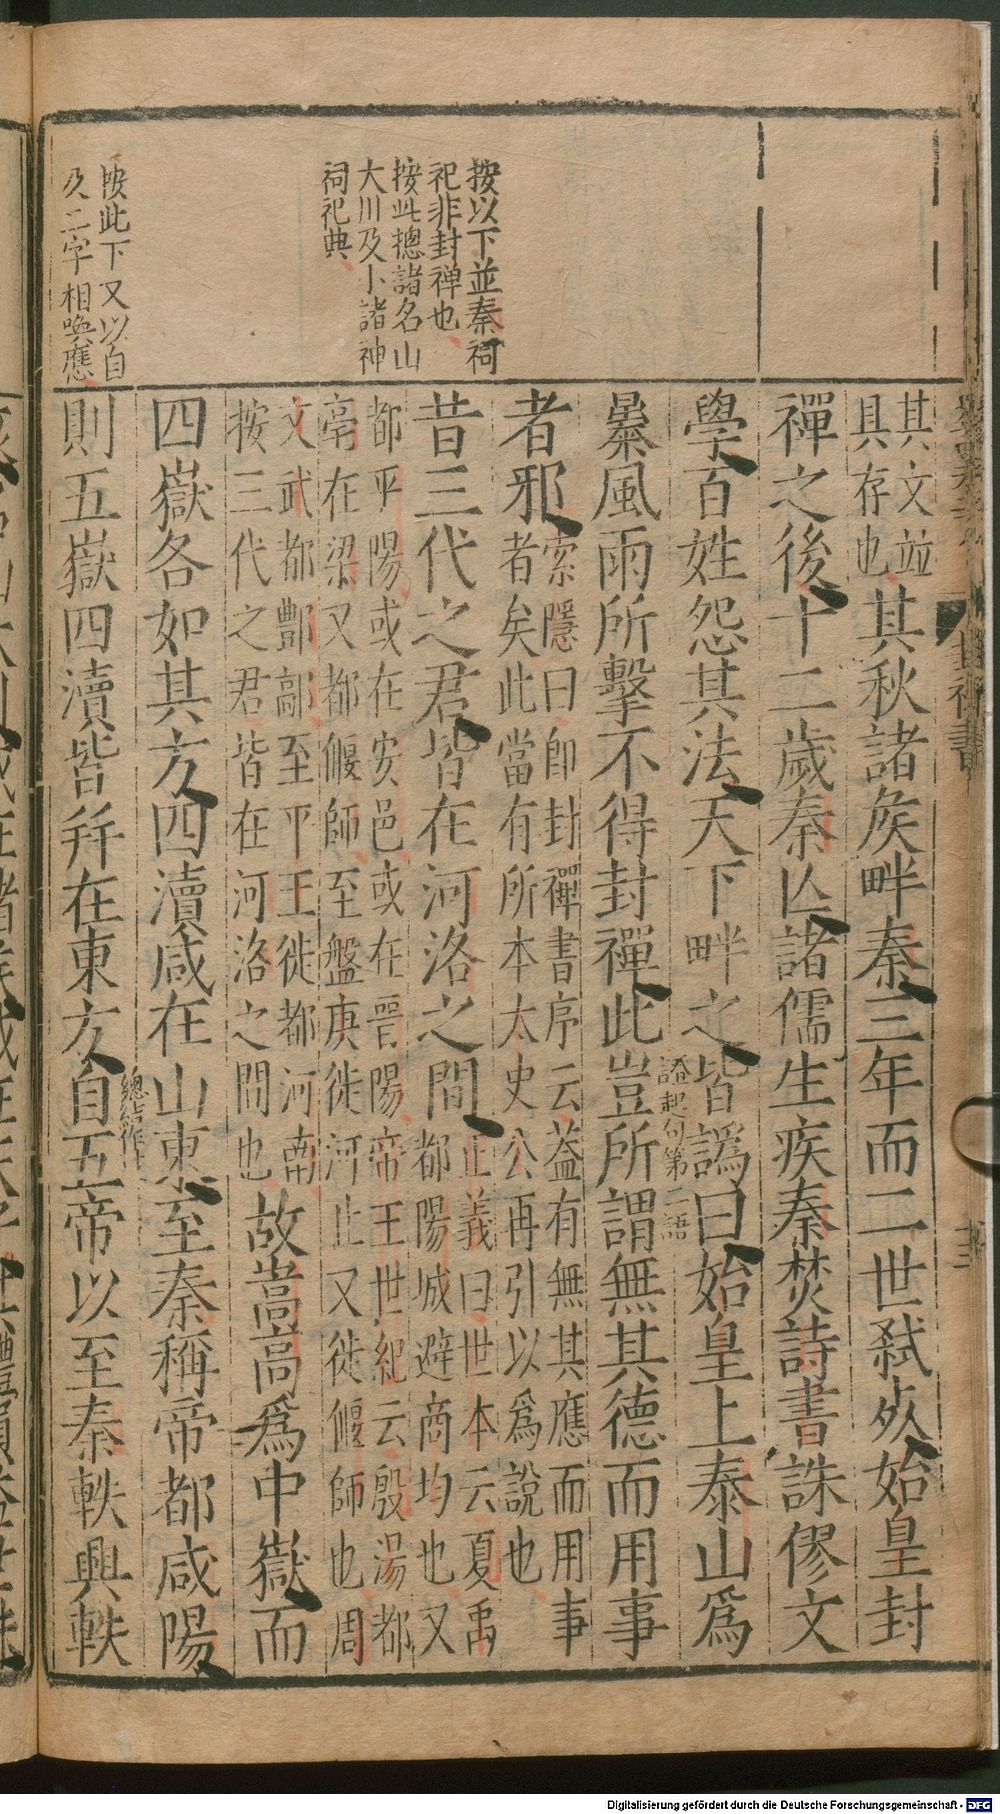 其文並
具存也
其秋諸矦畔秦三年而二世弑死始皇封
禪之後十二歲秦亾諸儒生疾秦焚詩書誅僇文
學百姓怨其法天下畔之皆譌曰始皇上泰山爲
證起句第二語
暴風雨所擊不得封禪此豈所謂無其德而用事
者邪
索隱曰卽封禪書序云葢有無其應而用事
者矣此當有所本太史公再引以爲說也
昔三代之君皆在河洛之間
正義曰世本云夏禹
都陽城避商均也又
都平陽或在安邑或在晉陽帝王世紀云殷湯都
亳在梁又都偃師至盤庚徙河止又徙偃師也周
文武都酆鄗至平王徙都河南
按三代之君皆在河洛之間也
故嵩高爲中嶽而
四嶽各如其方四瀆咸在山東至秦稱帝都咸陽
總結作
則五嶽四瀆皆幷在東方自五帝以至秦軼興軼
按以下並秦祠
祀非封禪也
按此摠諸名山
大川及小諸神
祠祀典
按此下又以自
及二字相喚應
Digitalisierung gefördert durch die Deutsche Forschungsgemeinschaft - DFG